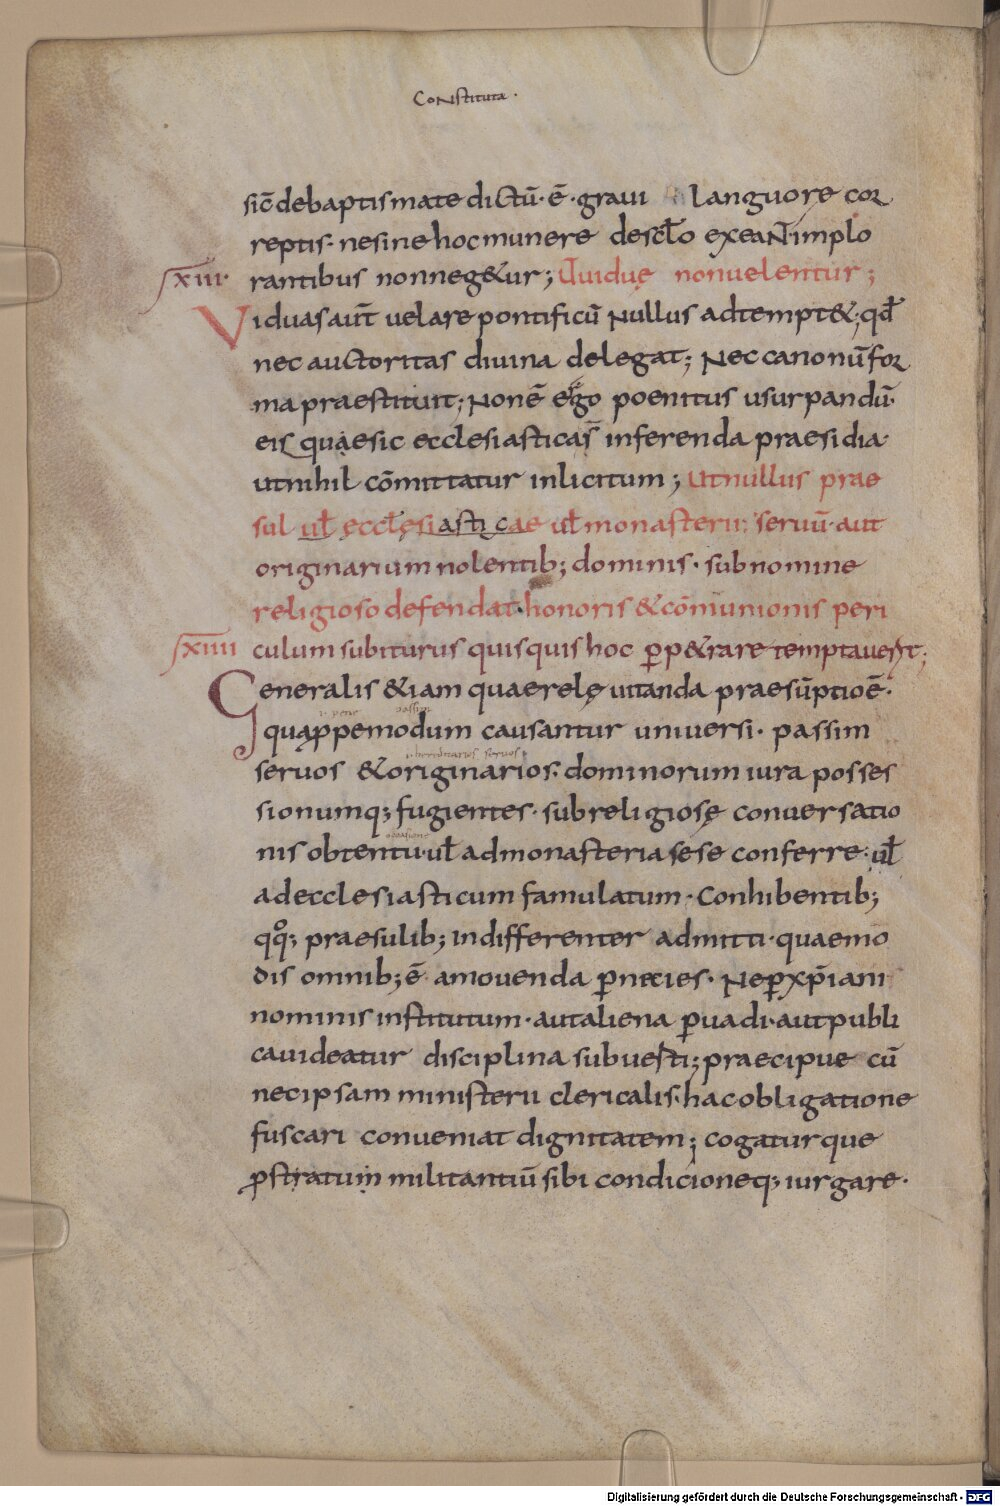 Constituta ·
sic̄ debaptismate dictū· ē · graui languore cor
reptis· nesine hoc munere desc̄lo exeaNT̄· implo
xiii· rantibus nonneg&ur; Uiduę nonuelentur;
Viduas aut̄ uelare pontificū Nullus adtempt&; qđ
nec auctoritas diuina delegat; Nec canonū for
ma praestituit; Nonē ergo poenitus usurpandū·
eis quae sic ecclesiasticas̄ inferenda praesidia·
utnihil cōmittatur inlicitum; Utnullus prae
sul ul̄ eccl̄esiasticae ul̄ monasterii seruū· aut
originarium nolentib; dominis· subnomine
religioso defendat· honoris &cōmunionis peri
xiiii culum subiturus quisquis hoc ꝑp&rare temptauerit;
Generalis &iam quaerelę uitanda praesūptio ē·
passim
quaꝓpemodum causantur uniuersi· passim
originarios seruos
seruos &originarios· dominorum iura posses
sionumq; fugientes· subreligiosę conuersatio
occasione
nis obtentu· ul̄ admonasteria sese conferre· ul̄
adecclesiasticum famulatum· Conhibentib;
qq̊; praesulib; indifferenter admitti· quaemo
dis omnib; ē· amouenda ꝑnicies· Neꝑxp̄iani
nominis institutum· autaliena ꝑuadi· autpubli
cauideatur disciplina subuerti; praecipue cū
necipsam ministerii clericalis· hac obligatione
fuscari conueniat dignitatem; cogaturque
ꝓstratum militantiū sibi condicioneq; iurgare·
Digitalisierung gefördert durch die Deutsche Forschungsgemeinschaft - DFG